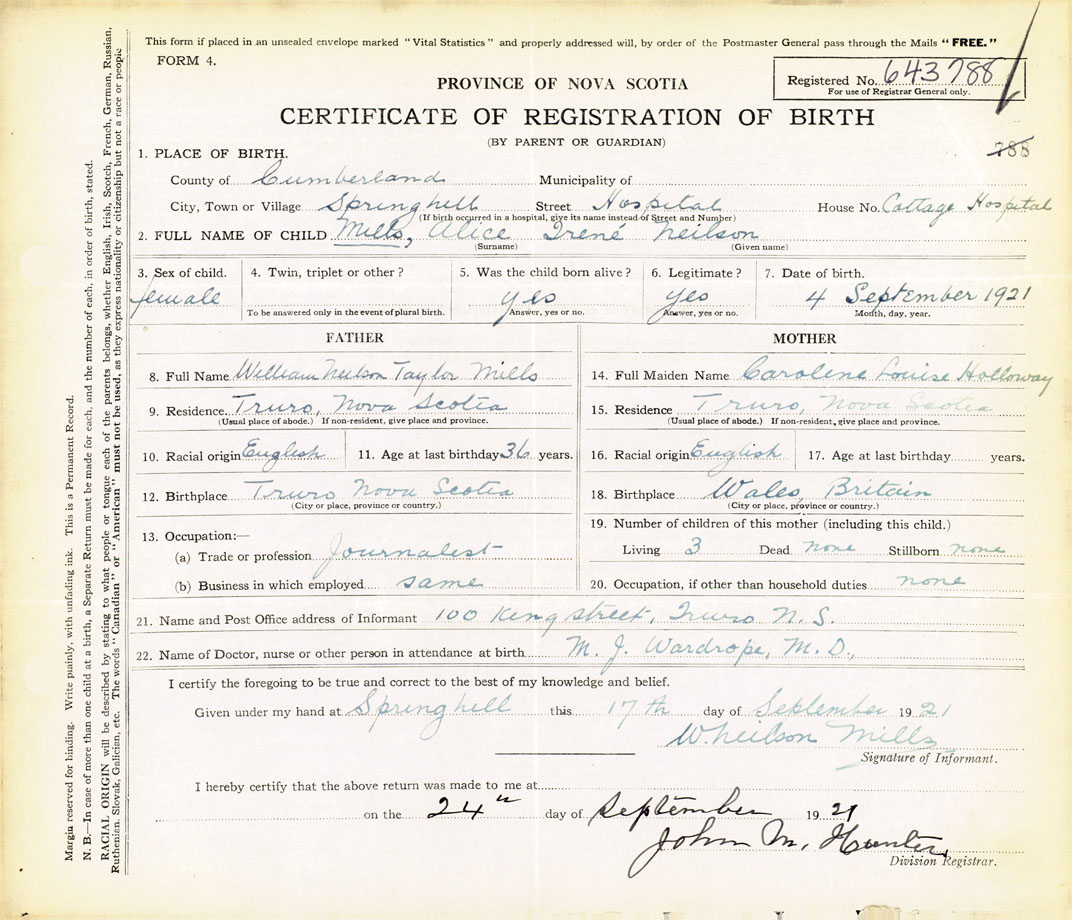 This form if placed in an unsealed envelope marked "Vital Statistics" and properly addressed will, by order of the Postmaster General pass through the Mails "FREE."
FORM 4.
Registered No. 643788
For use of Registrar General only.
PROVINCE OF NOVA SCOTIA
CERTIFICATE OF REGISTRATION OF BIRTH
(BY PARENT OR GUARDIAN)
788
1. PLACE OF BIRTH.
County of Cumberland Municipality of
City, Town or Village Springhill Street Hospital House No. Cottage Hospital
(If birth occurred in a hospital, give its name instead of Street and Number)
2. FULL NAME OF CHILD Mills, Alice Irené Neilson
(Surname) (Given name)
3. Sex of child. 4. Twin, triplet or other? 5. Was the child born alive? 6. Legitimate? 7. Date of birth.
female yes yes 4 September 1921
To be answered only in the event of plural birth. Answer, yes or no. Answer, yes or no. Month, day, year.
FATHER
8. Full Name William Neilson Taylor Mills
9. Residence. Truro, Nova Scotia
(Usual place of abode.) If non-resident, give place and province.
10. Racial origin English 11. Age at last birthday 36 years.
12. Birthplace Truro Nova Scotia
(City or place, province or country.)
13. Occupation:—
(a) Trade or profession Journalist
(b) Business in which employed same
MOTHER
14. Full Maiden Name Carolene Louise Holloway
15. Residence Truro, Nova Scotia
(Usual place of abode.) If non-resident, give place and province.
16. Racial origin English 17. Age at last birthday years.
18. Birthplace Wales, Britain
(City or place, province or country.)
19. Number of children of this mother (including this child.)
Living 3 Dead none Stillborn none
20. Occupation, if other than household duties none
21. Name and Post Office address of Informant 100 King street, Truro N.S.
22. Name of Doctor, nurse or other person in attendance at birth M. J. Wardrope, M.D.,
I certify the foregoing to be true and correct to the best of my knowledge and belief.
Given under my hand at Springhill this 17th day of September 1921
W. Neilson Mills
Signature of Informant.
I hereby certify that the above return was made to me at
on the 24" day of September 1921
John M. Hunter,
Division Registrar.
Margin reserved for binding. Write plainly, with unfading ink. This is a Permanent Record.
N. B.—In case of more than one child at a birth, a Separate Return must be made for each, and the number of each, in order of birth, stated.
RACIAL ORIGIN will be described by stating to what people or tongue each of the parents belongs, whether English, Irish, Scotch, French, German, Russian,
Ruthenian, Slovak, Galician, etc. The words "Canadian" or "American" must not be used, as they express nationality or citizenship but not a race or people